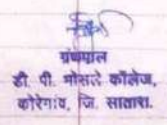 ग्रंथपाल
डी. पी. भोसले कॉलेज,
कोरेगांव, जि. सातारा.